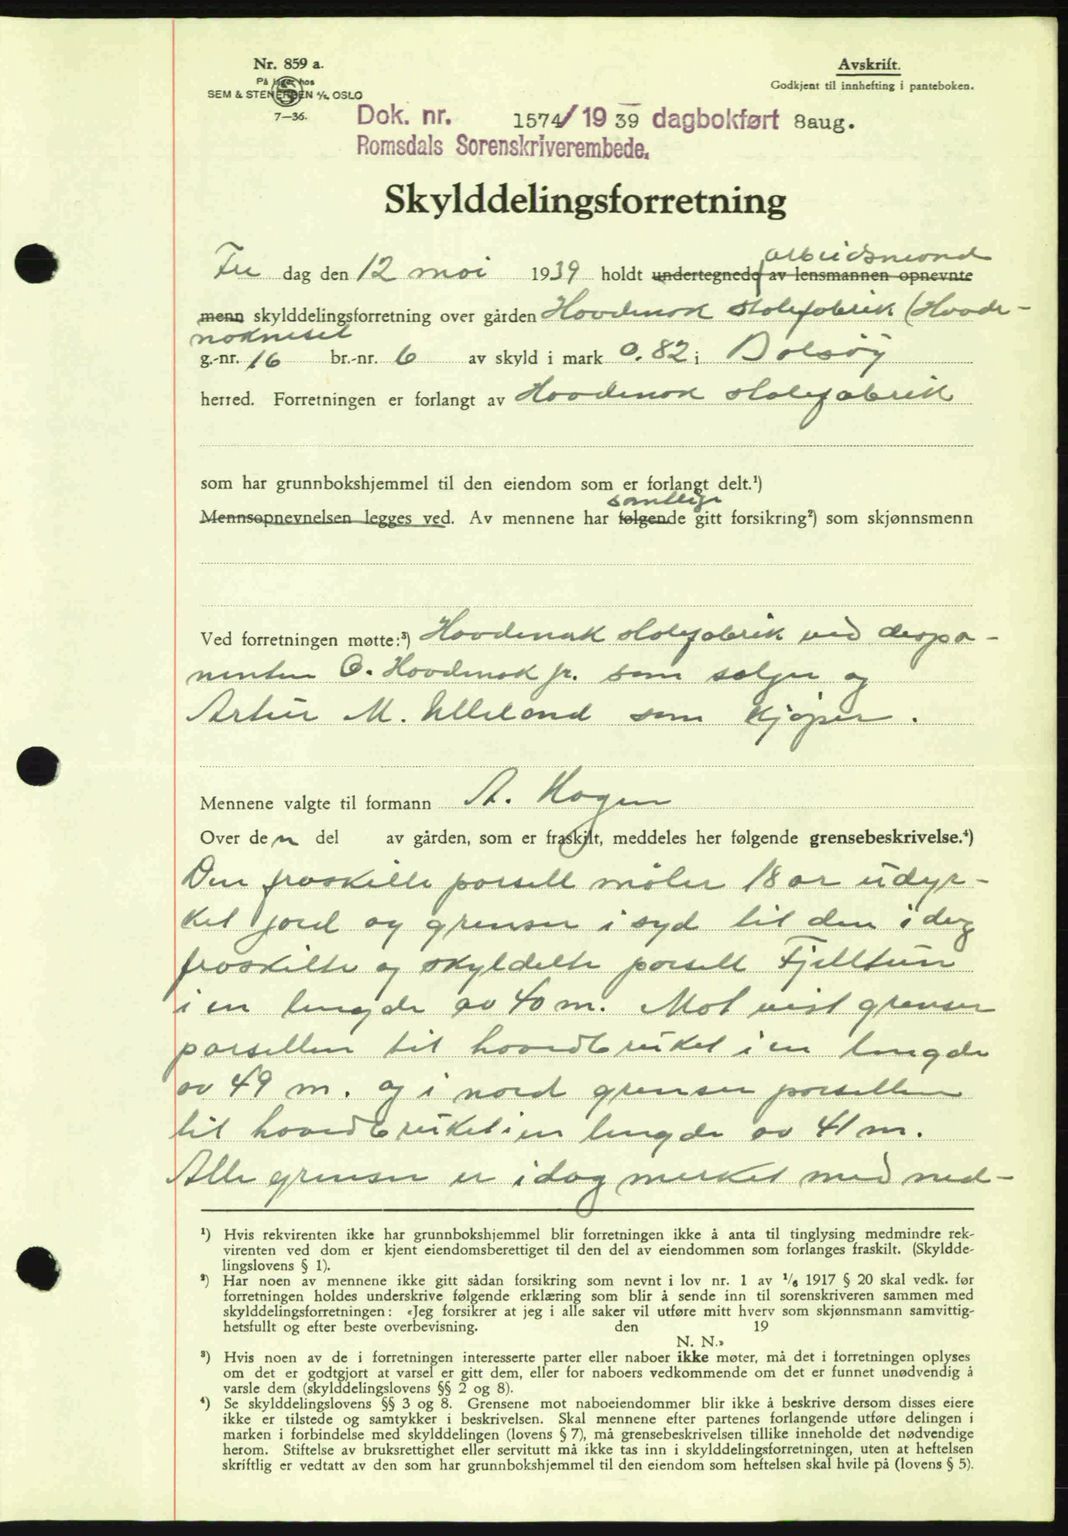 Nr. 859 a.
På lager hos
SEM & STENERSEN A/S, OSLO
7—36.
Avskrift.
Godkjent til innhefting i panteboken.
Dok. nr. 1574/1939 dagbokført 8aug.
Romsdals Sorenskriverembede.
Skylddelingsforretning
arbeidsmond
Fre dag den 12 mai 1939 holdt undertegnede av lensmannen opnevnte
menn skylddelingsforretning over gården Hovdenak stolefabrik (Hovde-
nakneset
g.-nr. 16 br.-nr. 6 av skyld i mark 0.82 i Bolsøy
herred. Forretningen er forlangt av Hovdenak stolefabrik
som har grunnbokshjemmel til den eiendom som er forlangt delt.¹)
samtlige
Mennsopnevnelsen legges ved. Av mennene har følgende gitt forsikring²) som skjønnsmenn
Ved forretningen møtte:³) Hovdenak stolefabrik ved dispo-
nenten O. Hovdenak jr. som selger og
Artur M. Ulleland som kjøper.
Mennene valgte til formann A. Hagen
Over den del av gården, som er fraskilt, meddeles her følgende grensebeskrivelse.⁴)
Den fraskilte parsell måler 18 ar udyr-
ket jord og grenser i syd til den i dag
fraskilte og skyldelte parsell Fjelltun
i en lengde av 40 m. Mot vest grenser
parsellen til hovedbruket i en lengde
av 49 m. og i nord grenser parsellen
til hovedbruket i en lengde av 41 m.
Alle grenser er i dag merket med ned-
¹) Hvis rekvirenten ikke har grunnbokshjemmel blir forretningen ikke å anta til tinglysing medmindre rek-
virenten ved dom er kjent eiendomsberettiget til den del av eiendommen som forlanges fraskilt. (Skyldde-
lingslovens § 1).
²) Har noen av mennene ikke gitt sådan forsikring som nevnt i lov nr. 1 av 1/6 1917 § 20 skal vedk. før
forretningen holdes underskrive følgende erklæring som blir å sende inn til sorenskriveren sammen med
skylddelingsforretningen: «Jeg forsikrer at jeg i alle saker vil utføre mitt hverv som skjønnsmann samvittig-
hetsfullt og efter beste overbevisning. den 19
N. N.»
³) Hvis noen av de i forretningen interesserte parter eller naboer ikke møter, må det i forretningen oplyses
om det er godtgjort at varsel er gitt dem, eller for naboers vedkommende om det er funnet unødvendig å
varsle dem (skylddelingslovens §§ 2 og 8).
⁴) Se skylddelingslovens §§ 3 og 8. Grensene mot naboeiendommer blir ikke å beskrive dersom disses eiere
ikke er tilstede og samtykker i beskrivelsen. Skal mennene efter partenes forlangende utføre delingen i
marken i forbindelse med skylddelingen (lovens § 7), må grensebeskrivelsen tillike inneholde det nødvendige
herom. Stiftelse av bruksrettighet eller servitutt må ikke tas inn i skylddelingsforretningen, uten at heftelsen
skriftlig er vedtatt av den som har grunnbokshjemmel til den eiendom som heftelsen skal hvile på (lovens § 5).